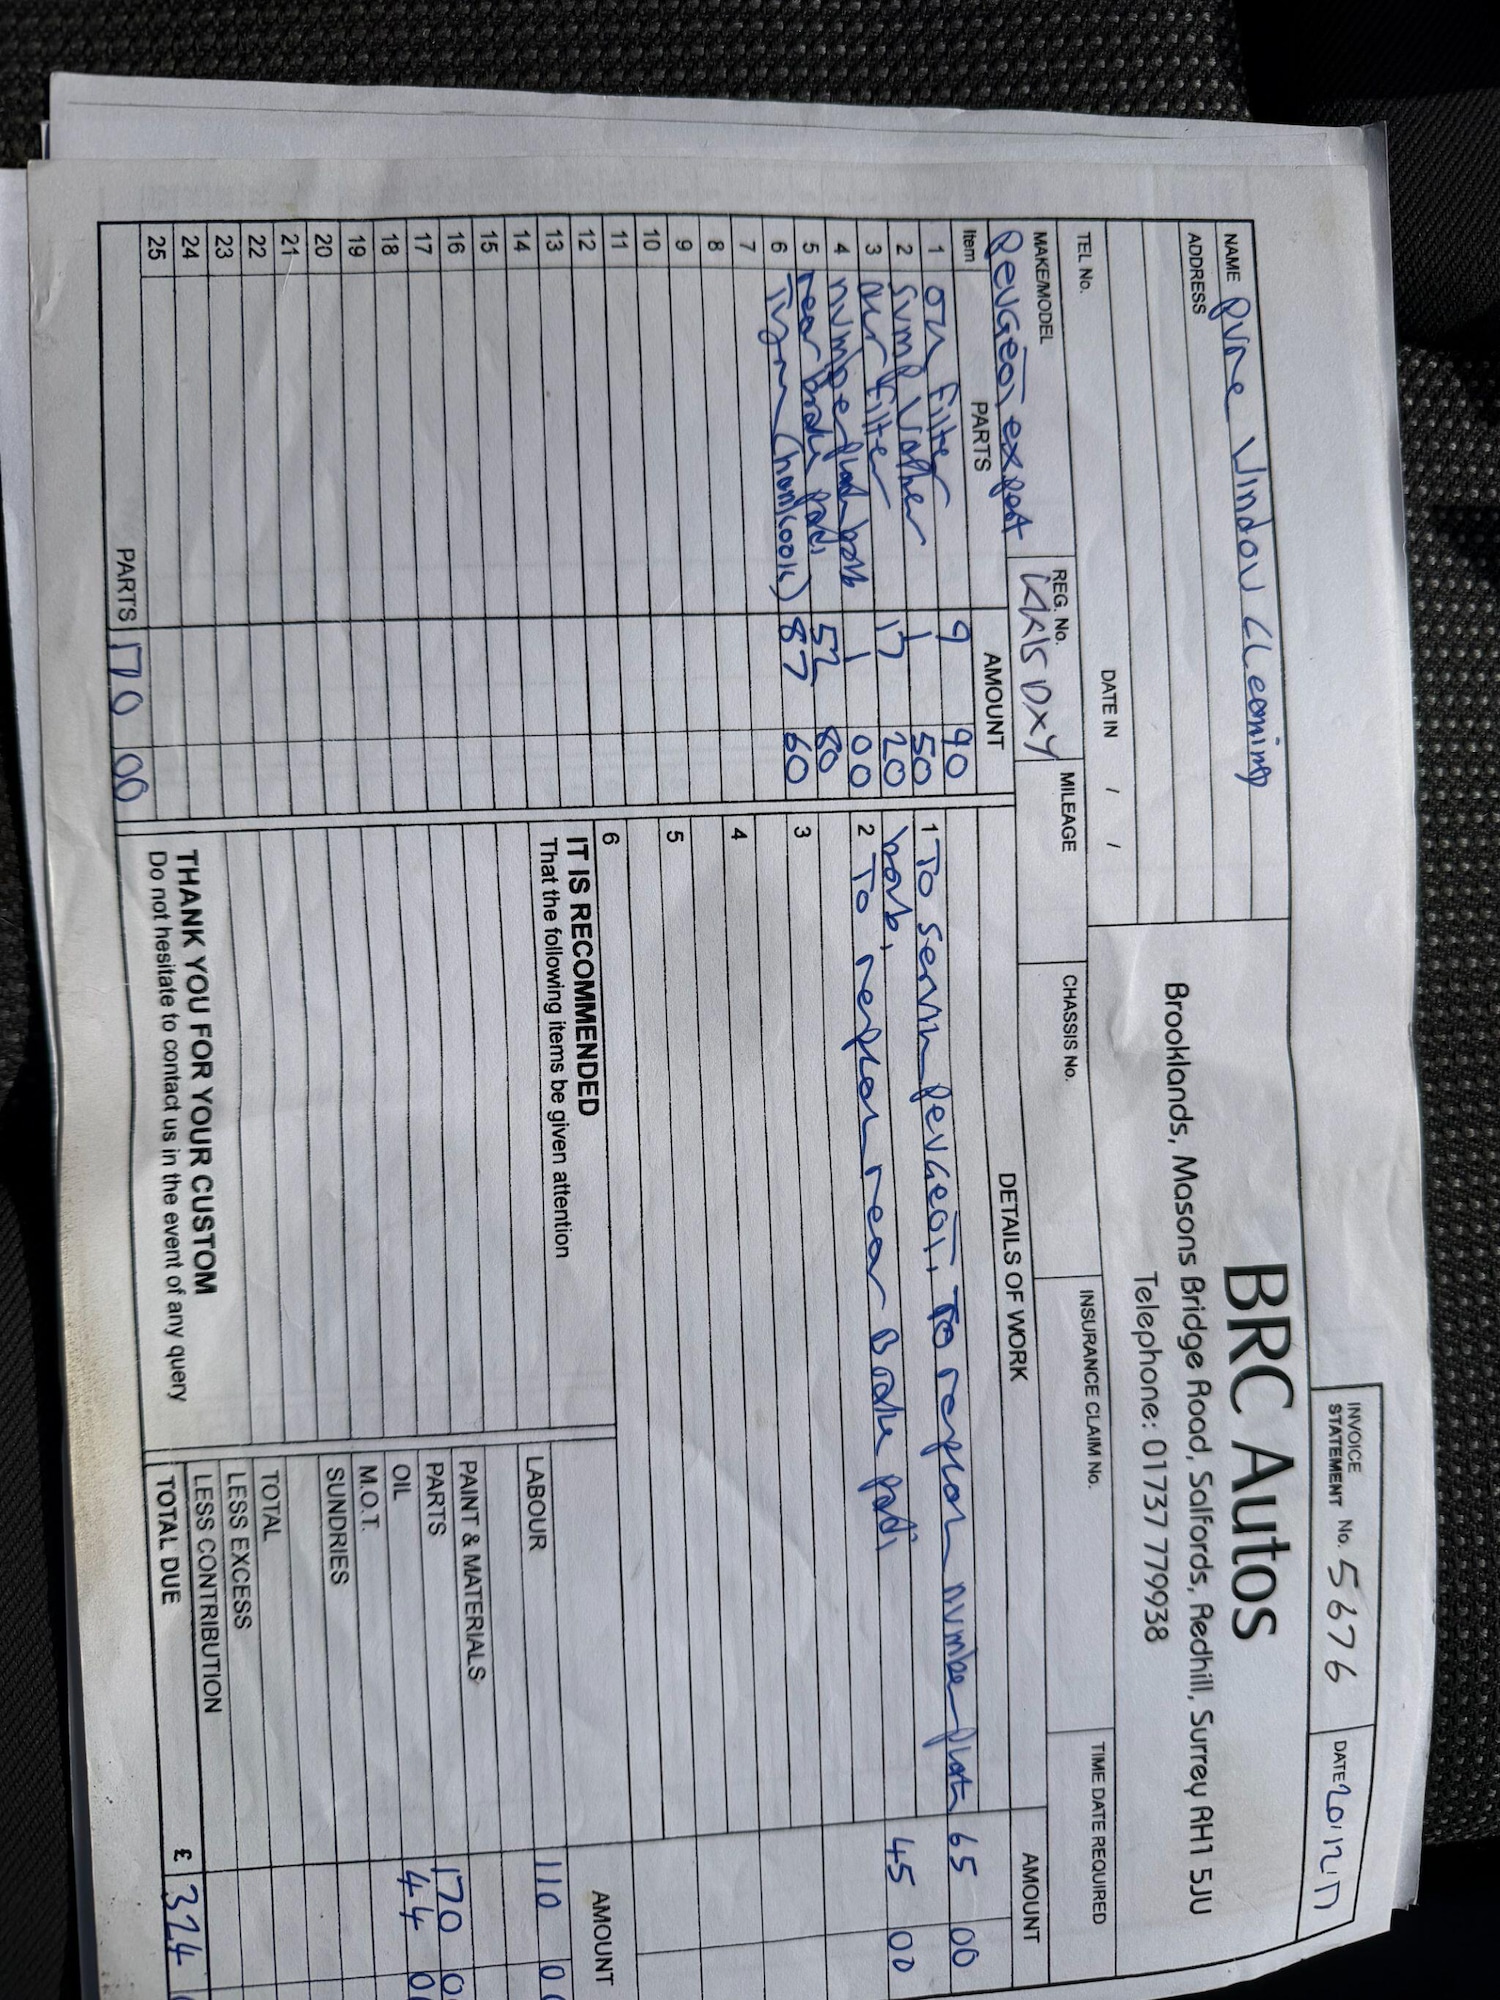 INVOICE
STATEMENT No. 5676 DATE 20.12.17
BRC Autos
Brooklands, Masons Bridge Road, Salfords, Redhill, Surrey RH1 5JU
Telephone: 01737 779938
NAME Pure Window Cleaning
ADDRESS
DATE IN / /
TEL No.
MAKE/MODEL REG. No. MILEAGE CHASSIS No. INSURANCE CLAIM No. TIME DATE REQUIRED
PEUGEOT expert DXY
Item PARTS AMOUNT
1 OIL filter 9 90
2 Sump Washer 1 50
3 air filter 17 20
4 number plate bulb 1 00
5 rear brake pads 52 80
6 Tyre (hankook) 87 60
7
8
9
10
11
12
13
14
15
16
17
18
19
20
21
22
23
24
25
PARTS 170 00
DETAILS OF WORK AMOUNT
1 To service PEUGEOT, To replace number plate 65 00
bulb,
2 To replace rear Brake pads 45 00
3
4
5
6
IT IS RECOMMENDED
That the following items be given attention
AMOUNT
LABOUR 110 0
PAINT & MATERIALS
PARTS 170 0
OIL 44 0
M.O.T.
SUNDRIES
TOTAL
LESS EXCESS
LESS CONTRIBUTION
TOTAL DUE £ 324
THANK YOU FOR YOUR CUSTOM
Do not hesitate to contact us in the event of any query